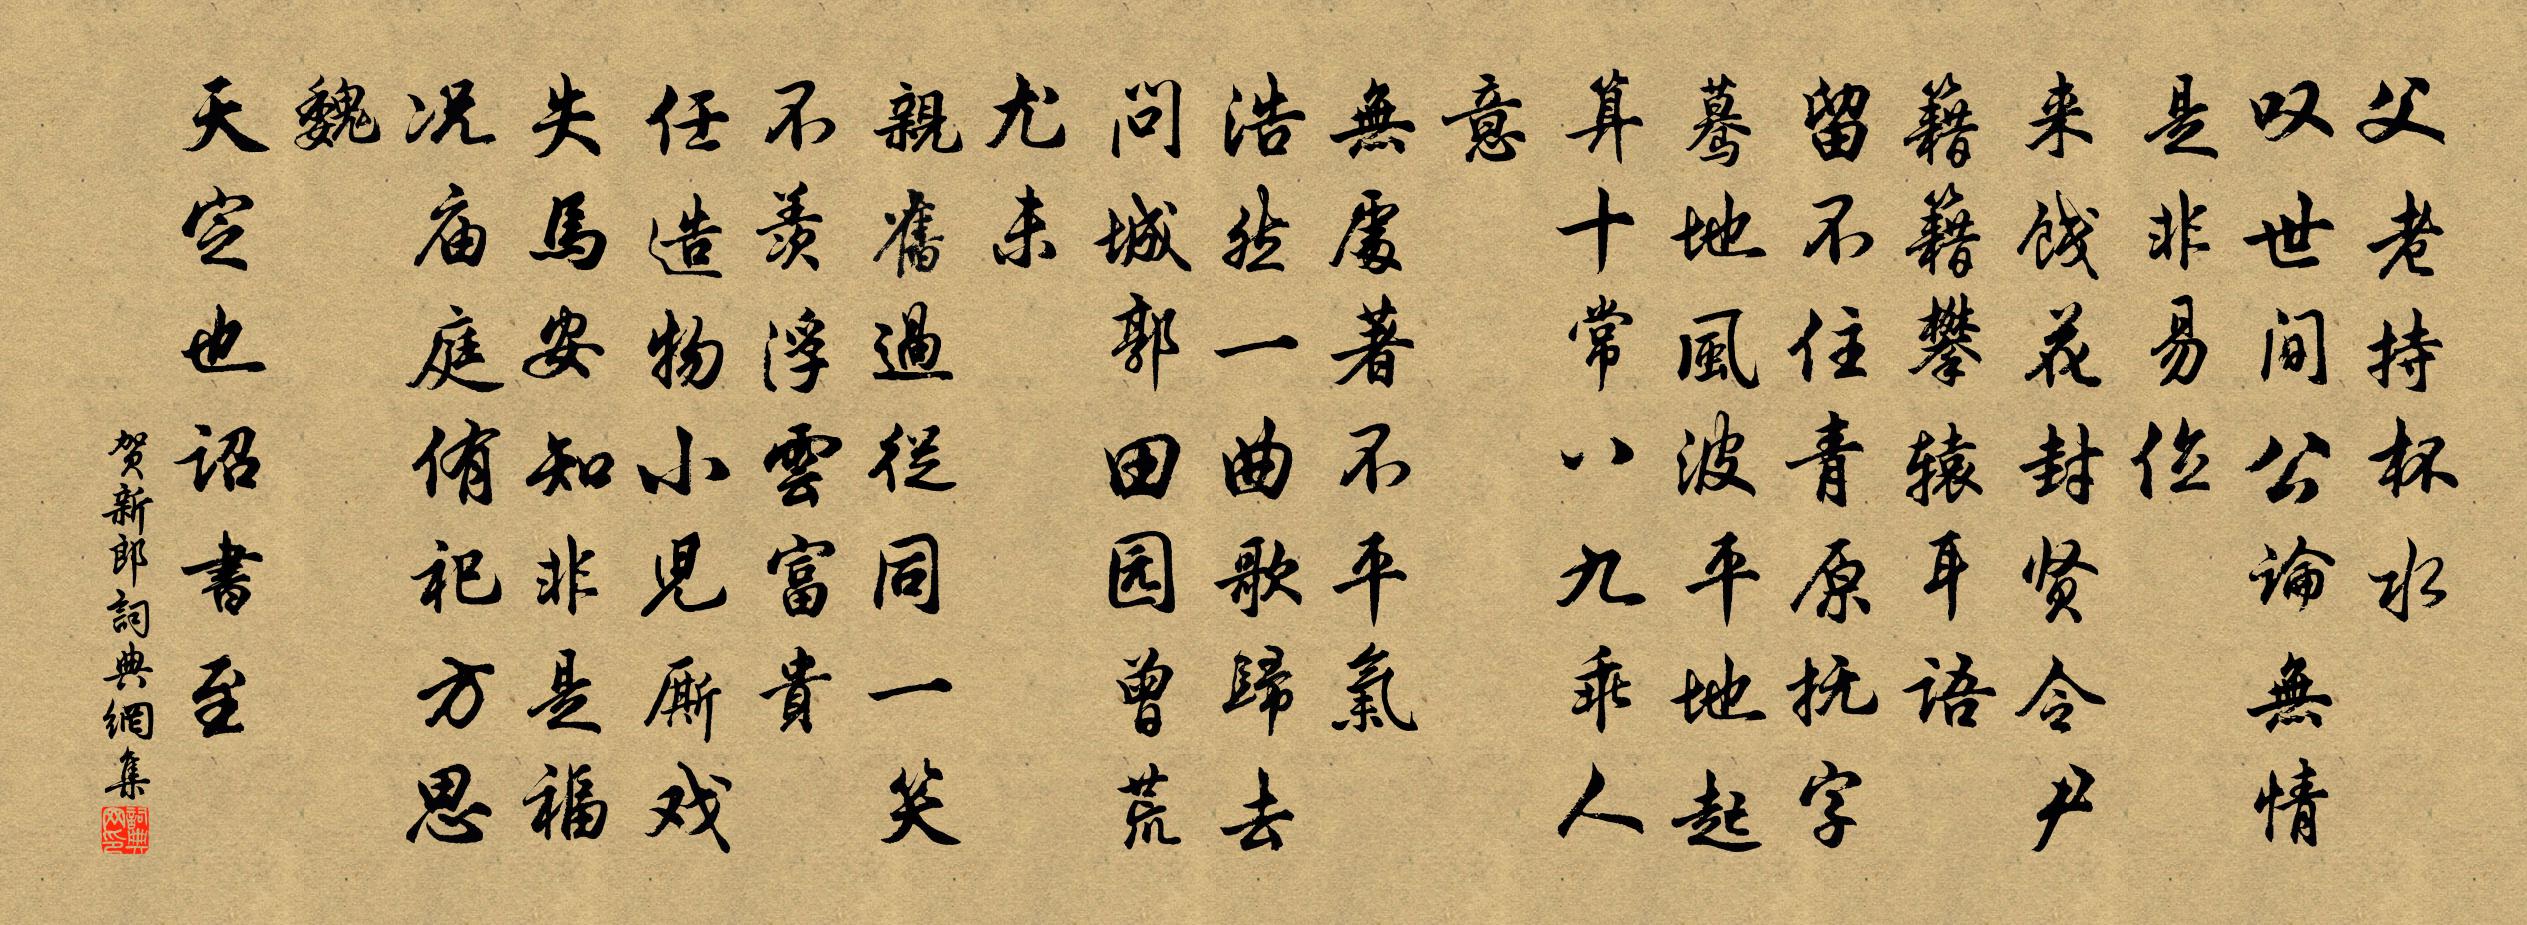 父老持杯水
叹世间公論無情
是非易位
来饯花封贤令尹
籍籍攀辕耳语
留不住青原抚字
蓦地風波平地起
算十常八九乖人
意
無處著不平氣
浩然一曲歌歸去
問城郭田园曾荒
尤未
親舊過從同一笑
不羡浮雲富貴
任造物小兒厮戏
失馬安知非是福
况庙庭侑祀方思
魏
天定也诏書至
贺新郎詞典網集
詞典网印